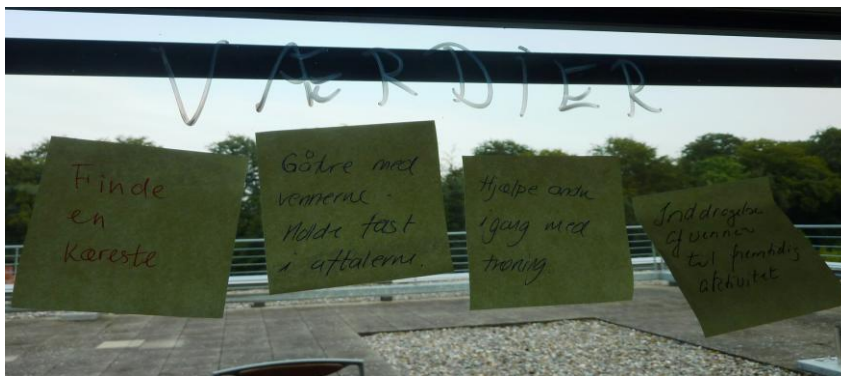 VÆRDIER
Finde
en
Kæreste
Gåture med
vennerne.
Holde fast
i aftalerne.
Hjælpe andre
i gang med
træning
Inddragelse
af venner
til fremtidig
aktivitet